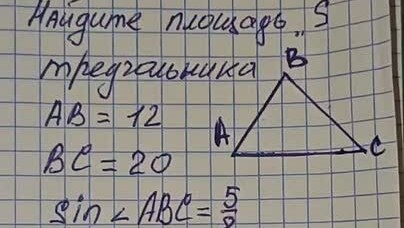 Найдите площадь "S
треугольника
AB = 12
BC = 20
sin < ABC = 5/8
B
A
C